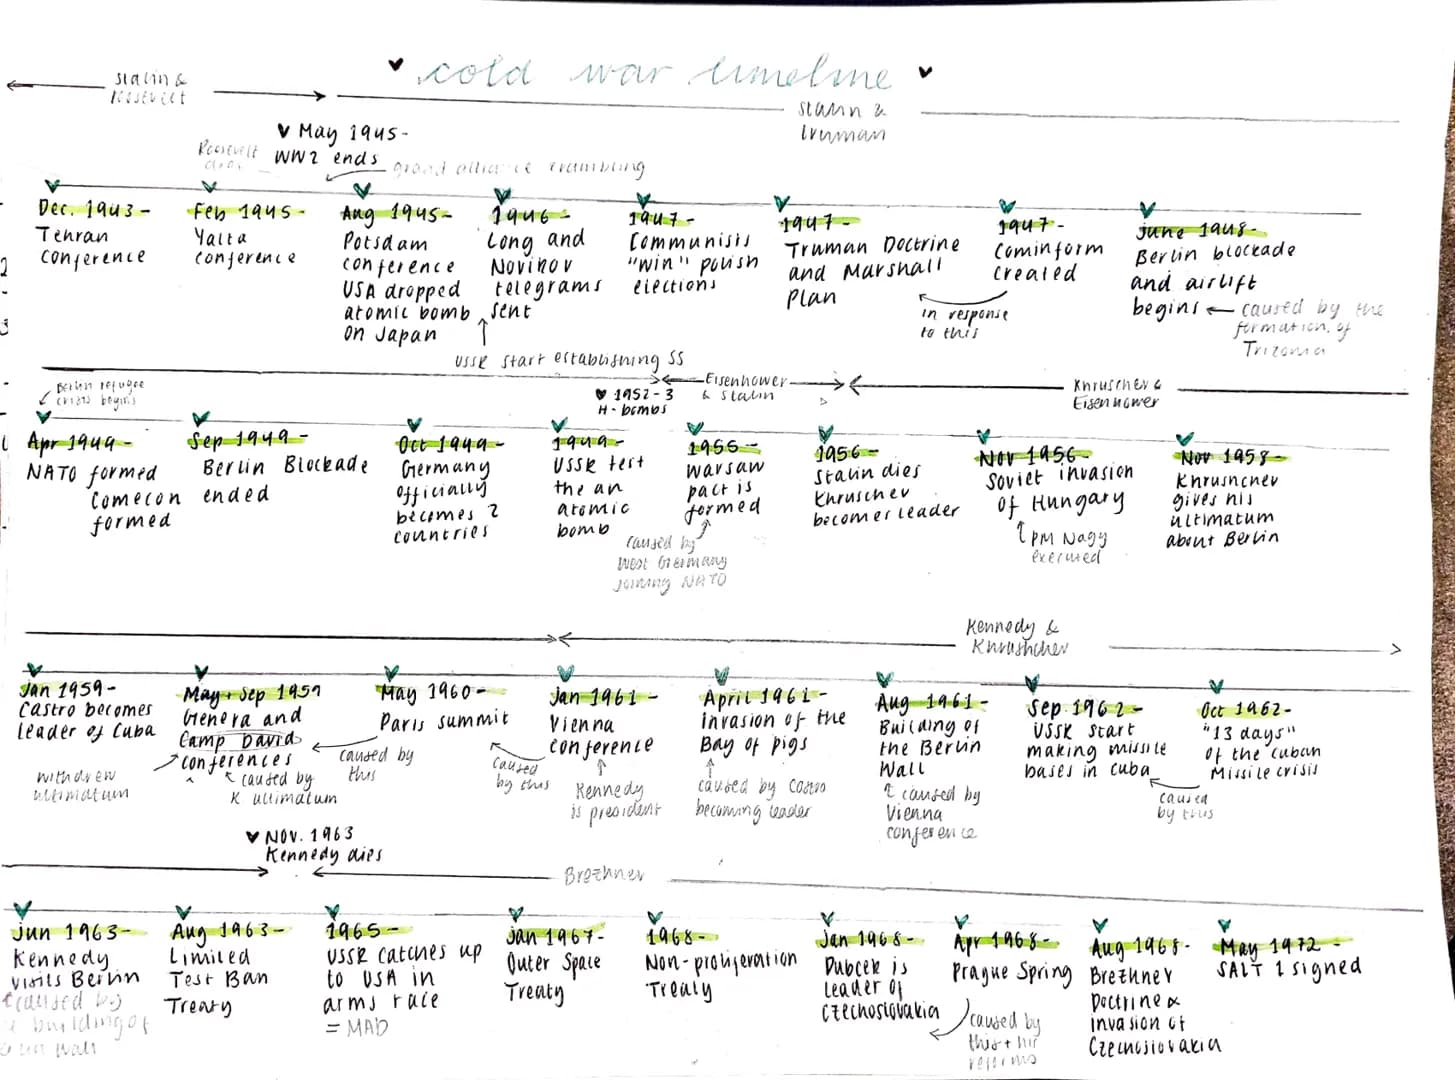 cold war timeline
Stalin &
Roosevelt
Stalin &
Truman
May 1945-
WW2 ends
Roosevelt
dies
grand alliance crumbling
Dec. 1943-
Tehran
conference
Feb 1945-
Yalta
conference
Aug 1945-
Potsdam
conference
USA dropped
atomic bomb
on Japan
1946-
Long and
Novikov
telegrams
sent
USSR start establishing SS
1947-
Communists
"win" polish
elections
1947-
Truman Doctrine
and Marshall
Plan
1947-
Cominform
created
in response
to this
June 1948-
Berlin blockade
and airlift
begins
caused by the
formation of
Trizonia
Eisenhower
& Stalin
Khruschev &
Eisenhower
Berlin refugee
crisis begins
1952-3
H-bombs
Apr 1949-
NATO formed
Comecon
formed
Sep 1949-
Berlin Blockade
ended
Oct 1949-
Germany
officially
becomes 2
countries
1949-
USSR test
the an
atomic
bomb
1955-
Warsaw
pact is
formed
caused by
West Germany
joining NATO
1956-
Stalin dies
Khruschev
becomes leader
Nov 1956-
Soviet invasion
of Hungary
PM Nagy
executed
Nov 1958-
Khrushchev
gives his
ultimatum
about Berlin
Kennedy &
Khrushchev
Jan 1959-
Castro becomes
leader of Cuba
May + Sep 1959
Geneva and
Camp David
conferences
withdrew
ultimatum
caused by
K ultimatum
May 1960-
Paris summit
caused by
this
Jan 1961-
Vienna
conference
caused
by this
Kennedy
is president
April 1961-
invasion of the
Bay of pigs
caused by Castro
becoming leader
Aug 1961-
Building of
the Berlin
Wall
caused by
Vienna
conference
Sep 1962-
USSR start
making missile
bases in cuba
Oct 1962-
"13 days"
of the cuban
Missile crisis
caused
by this
Nov. 1963
Kennedy dies
Brezhnev
Jun 1963-
Kennedy
visits Berlin
caused by
building of
wall
Aug 1963-
Limited
Test Ban
Treaty
1965-
USSR catches up
to USA in
arms race
= MAD
Jan 1967-
Outer Space
Treaty
1968-
Non-proliferation
Treaty
Jan 1968-
Dubcek is
leader of
Czechoslovakia
Apr 1968-
Prague Spring
caused by
this + his
reforms
Aug 1968-
Brezhnev
Doctrine &
invasion of
Czechoslovakia
May 1972-
SALT 1 signed